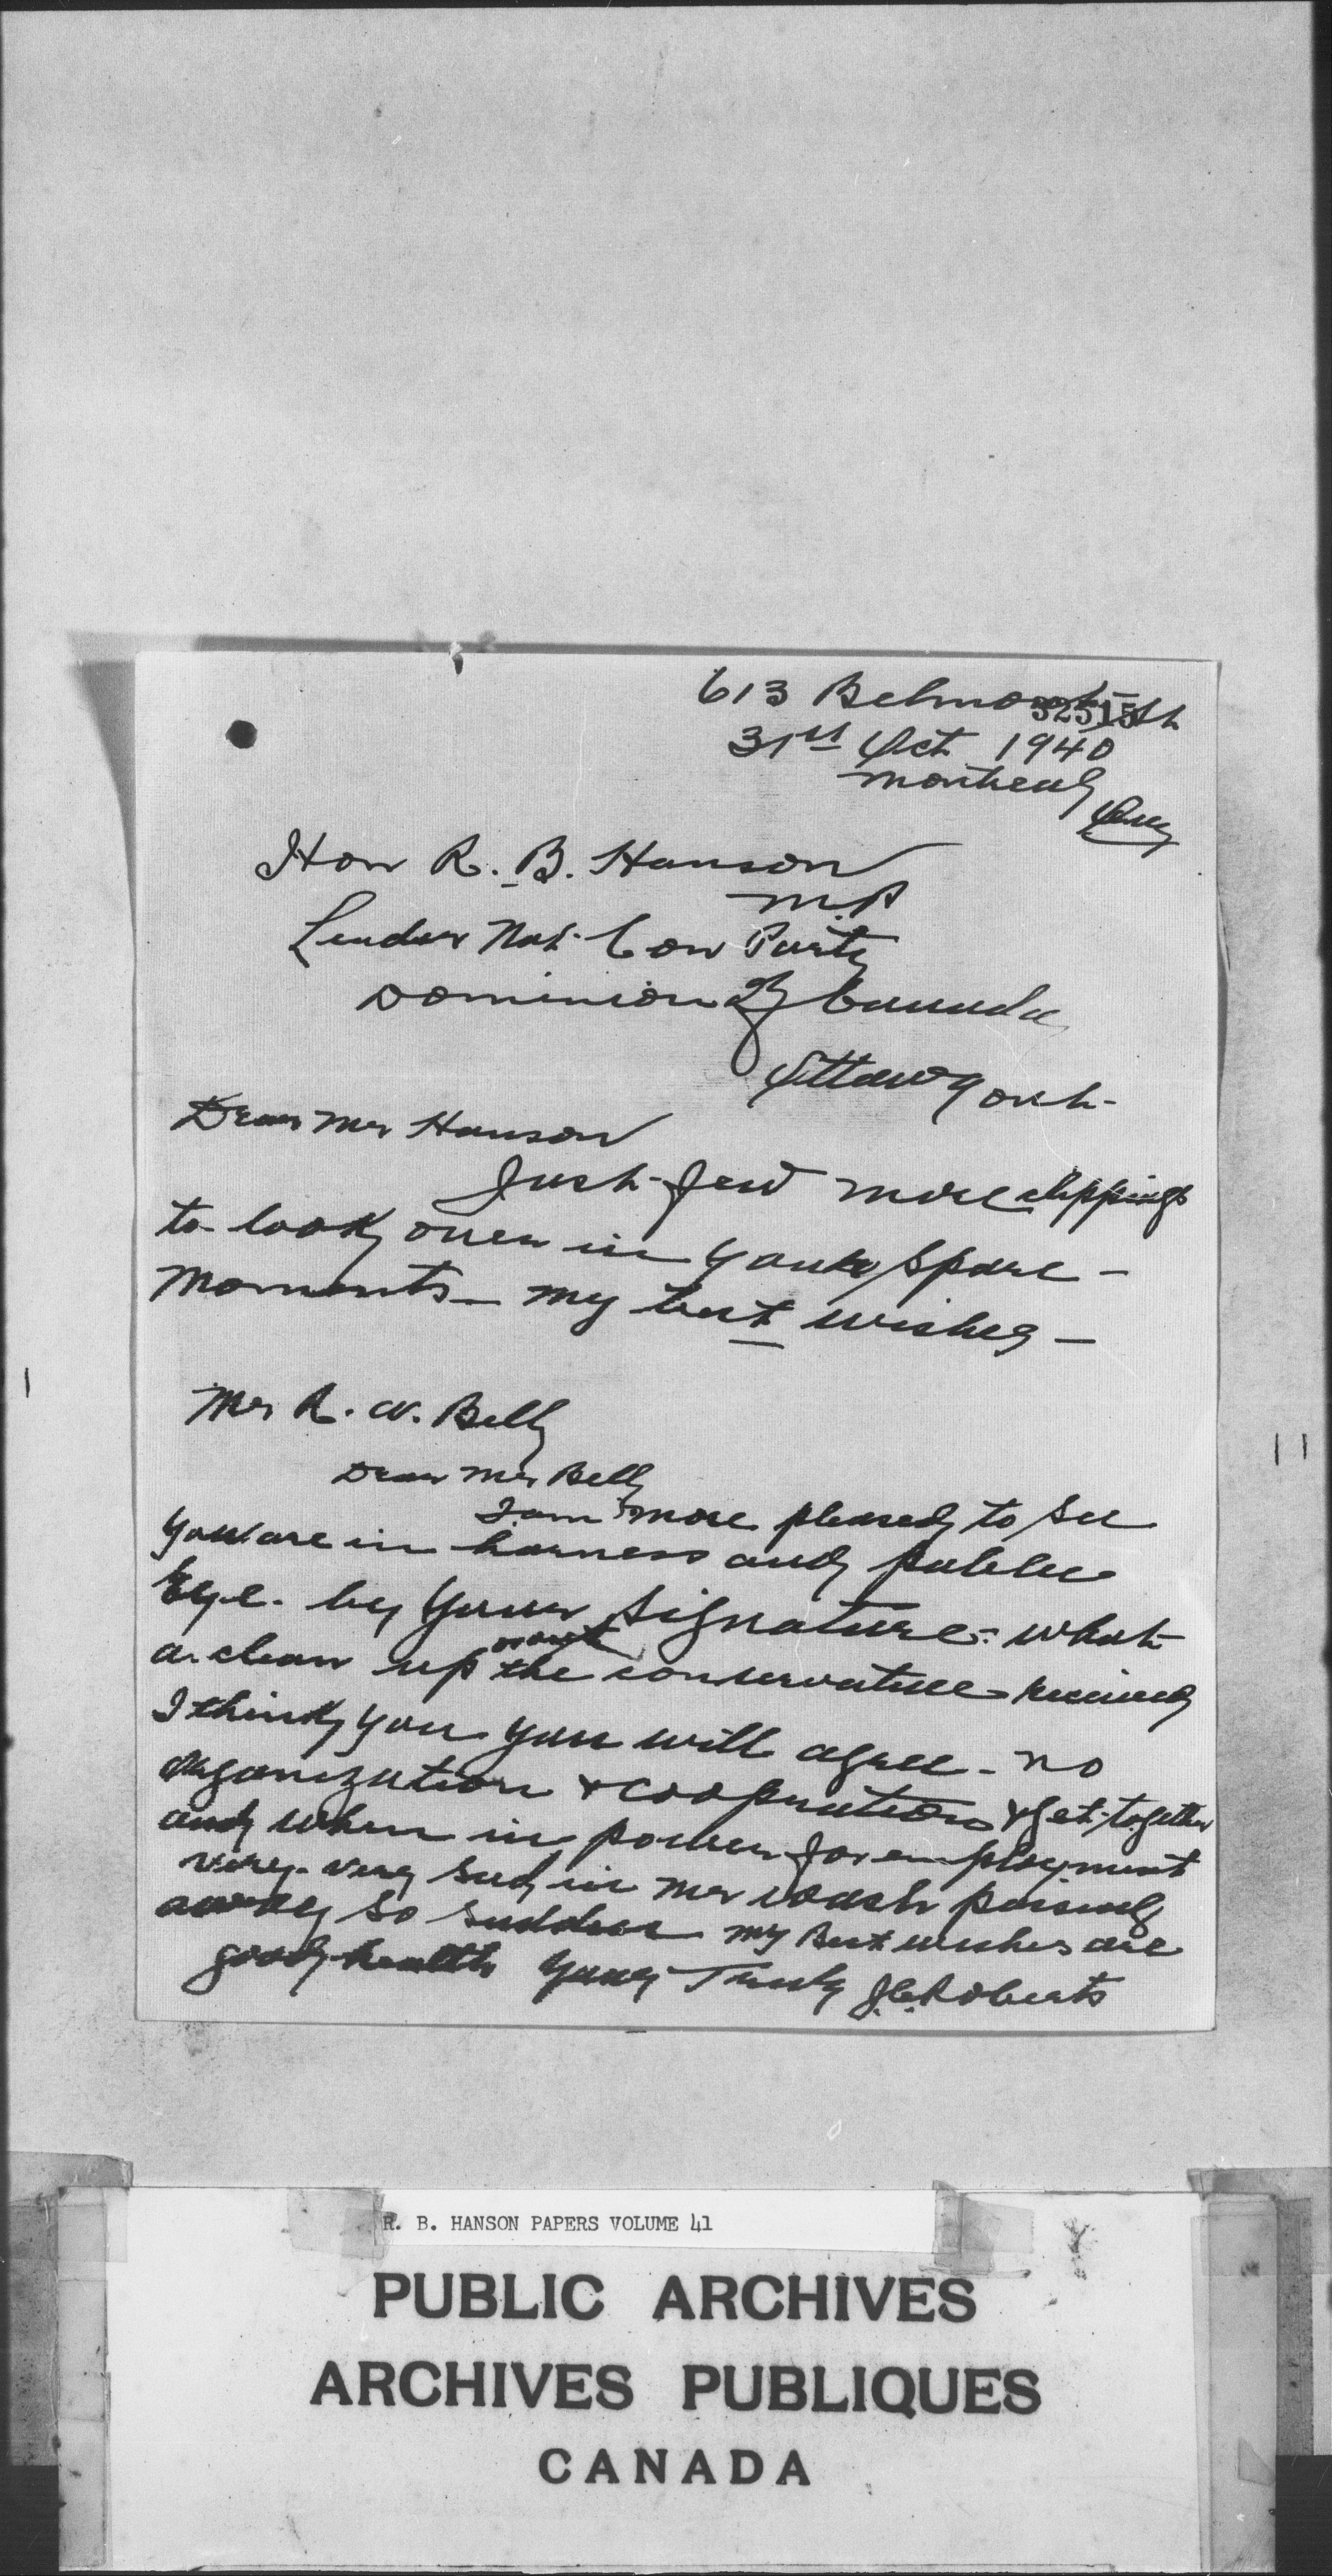 613 Belmont St
32515
31st Oct 1940
Montreal
Que
Hon R. B. Hanson
M.P
Leader Nat. Con Party
Dominion of Canada
Ottawa Ont-
Dear Mr Hanson
Just few more clippings
to look over in your spare-
moments- my best wishes-
Mr R. W. Bell
Dear Mr Bell
I am more pleased to see
you are in harness and public
Eye. by your signature- what
a. clean up the conservative received
I think you you will agree- no
organization & cooperation & get-together
and when in power for employment
very- very sad in Mr passing
away so sudden my Best wishes are
good health yours Truly J.C. Roberts
R. B. HANSON PAPERS VOLUME 41
PUBLIC ARCHIVES
ARCHIVES PUBLIQUES
CANADA